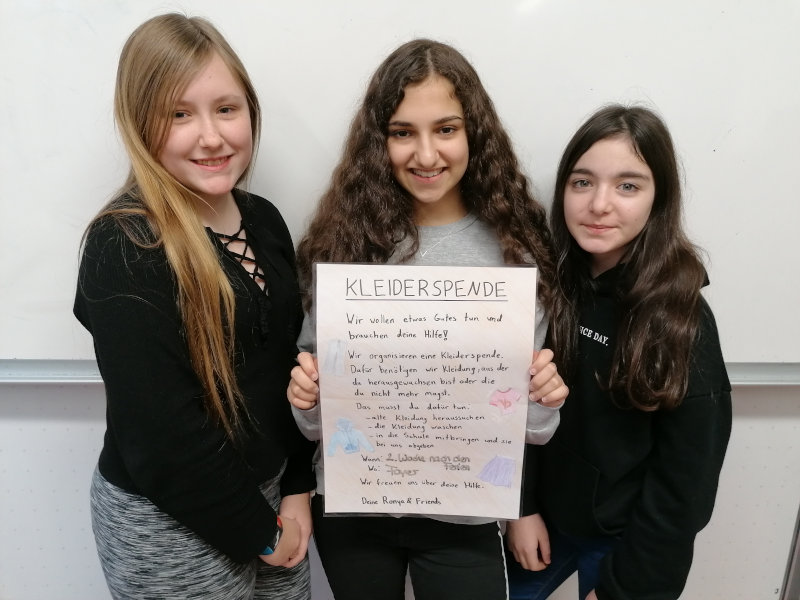 KLEIDERSPENDE
Wir wollen etwas Gutes tun und
brauchen deine Hilfe!
Wir organisieren eine Kleiderspende.
Dafür benötigen wir Kleidung, aus der
du herausgewachsen bist oder die
du nicht mehr magst.
Das musst du dafür tun:
- alte Kleidung heraussuchen
- die Kleidung waschen
- in die Schule mitbringen und sie
bei uns abgeben
Wann: 2. Woche nach den
Ferien
Wo: Foyer
Wir freuen uns über deine Hilfe.
Deine Ronya & Friends
NICE DAY.